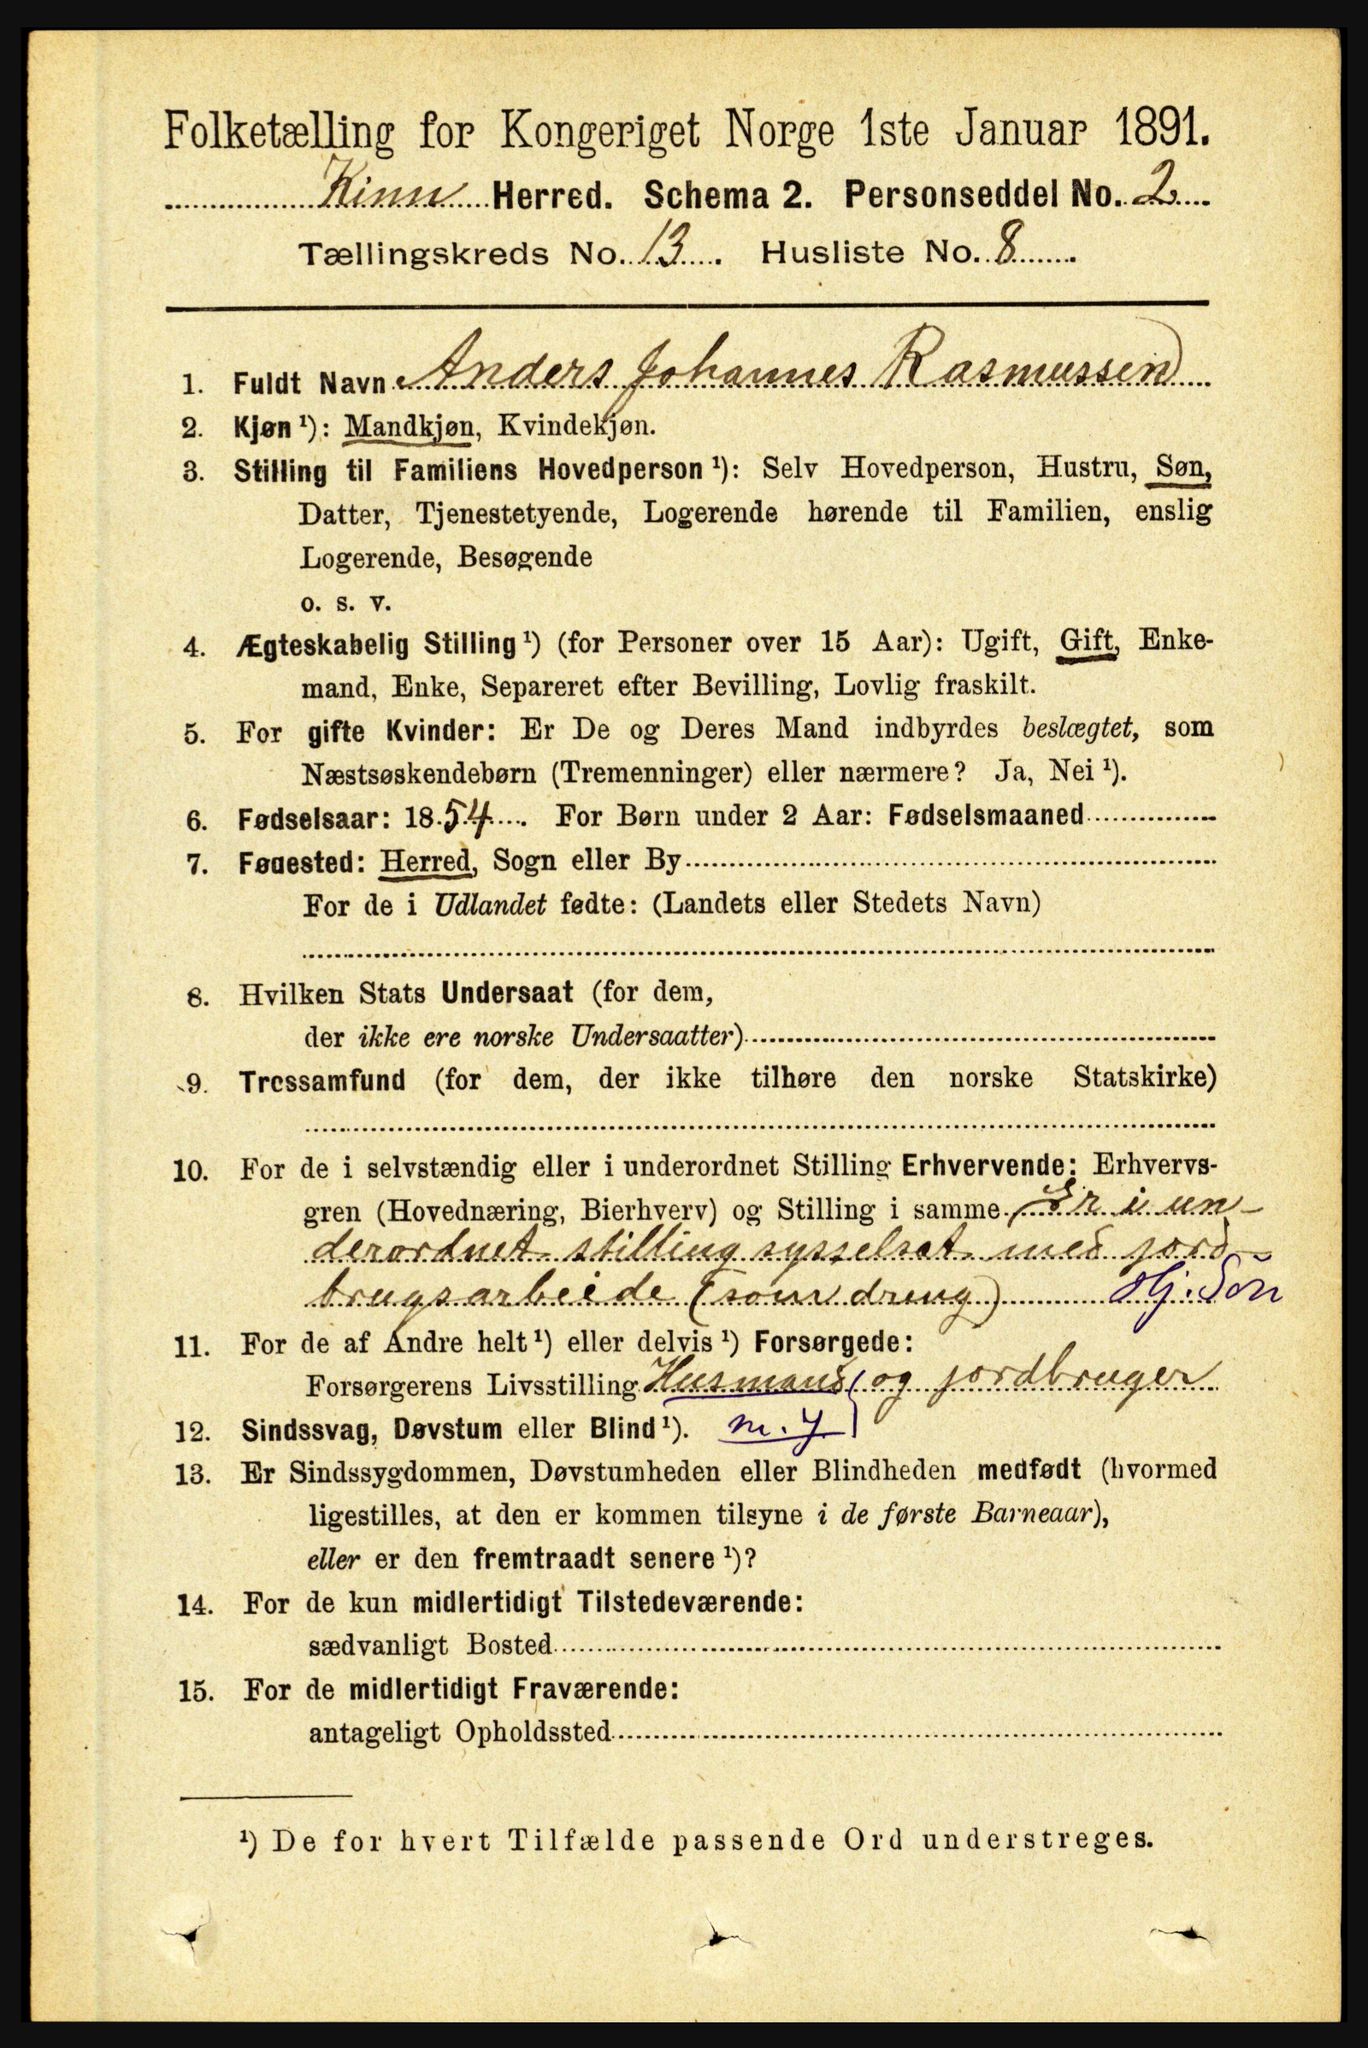 Folketælling for Kongeriget Norge 1ste Januar 1891.
Kinn Herred. Schema 2. Personseddel No. 2
Tællingskreds No. 13. Husliste No. 8
1. Fuldt Navn Anders Johannes Rasmussen
2. Kjøn ¹): Mandkjøn, Kvindekjøn.
3. Stilling til Familiens Hovedperson ¹): Selv Hovedperson, Hustru, Søn,
Datter, Tjenestetyende, Logerende hørende til Familien, enslig
Logerende, Besøgende
o. s. v.
4. Ægteskabelig Stilling ¹) (for Personer over 15 Aar): Ugift, Gift, Enke-
mand, Enke, Separeret efter Bevilling, Lovlig fraskilt.
5. For gifte Kvinder: Er De og Deres Mand indbyrdes beslægtet, som
Næstsøskendebørn (Tremenninger) eller nærmere? Ja, Nei ¹).
6. Fødselsaar: 1854. For Børn under 2 Aar: Fødselsmaaned
7. Fødested: Herred, Sogn eller By
For de i Udlandet fødte: (Landets eller Stedets Navn)
8. Hvilken Stats Undersaat (for dem,
der ikke ere norske Undersaatter)
9. Trossamfund (for dem, der ikke tilhøre den norske Statskirke)
10. For de i selvstændig eller i underordnet Stilling Erhvervende: Erhvervs-
gren (Hovednæring, Bierhverv) og Stilling i samme Er i un-
derordnet stilling sysselsat med jord-
brugsarbeide (som dreng) Hj. Søn
11. For de af Andre helt ¹) eller delvis ¹) Forsørgede:
Forsørgerens Livsstilling Husmand og jordbruger
12. Sindssvag, Døvstum eller Blind ¹). m. J.
13. Er Sindssygdommen, Døvstumheden eller Blindheden medfødt (hvormed
ligestilles, at den er kommen tilsyne i de første Barneaar),
eller er den fremtraadt senere ¹)?
14. For de kun midlertidigt Tilstedeværende:
sædvanligt Bosted
15. For de midlertidigt Fraværende:
antageligt Opholdssted
¹) De for hvert Tilfælde passende Ord understreges.